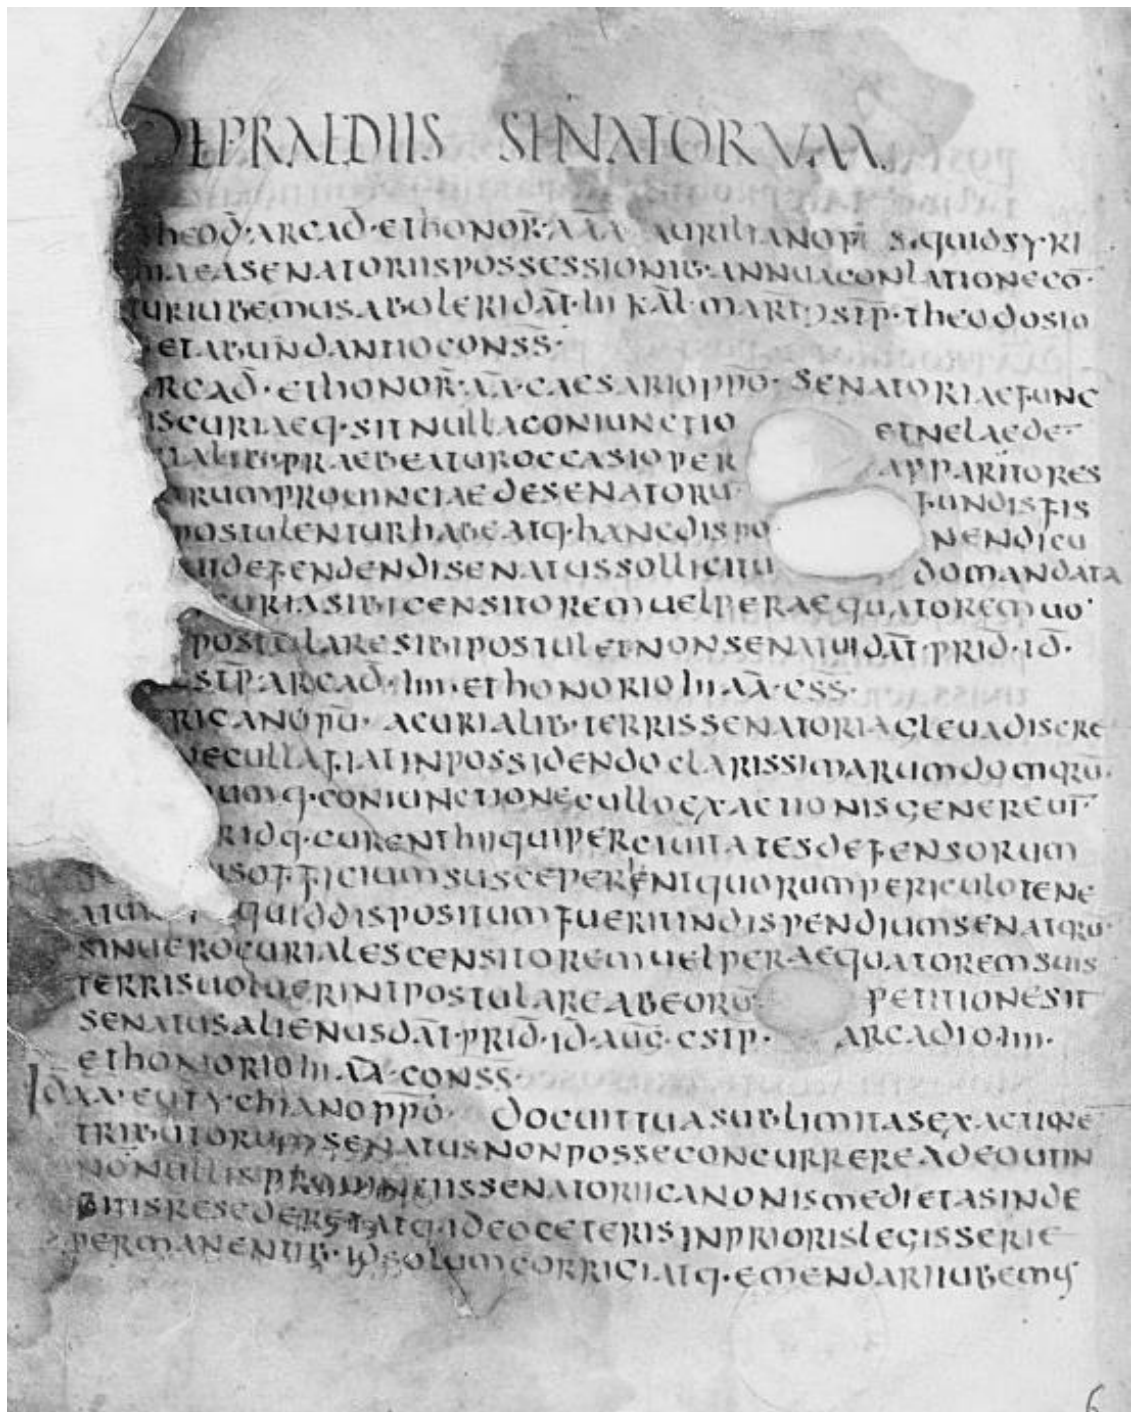 DE PRAEDIIS SENATORUM
THEOD·ARCAD·ET HONOR·AAA AURILIANO PF SI QUID SY·RI
EA SENATORIIS POSSESSIONIB·ANNUA CONLATIONE CO·
IUBEMUS ABOLERI DAT·III KAL·MART CSTP·THEODOSIO
ET ABUNDANTIO CONSS·
ARCAD·ET HONOR·AA·CAESARIO PPO·SENATORIAE FUNC
IS CURIAEQ·SIT NULLA CONIUNCTIO ET NE LAEDE
IALIB·PRAEBEATUR OCCASIO PER APPARITORES
ARUM PROUINCIAE DE SENATORU FUNDIS FIS
POSTULENTUR HABEATQ·HANC DISPO NENDI CU
DEFENDENDI SENATUS SOLLICITU DO MANDATA
CURIA SIBI CENSITOREM UEL PERAEQUATOREM UO
POSTULARE SIBI POSTULET NON SENATUI DAT·PRID·ID·
CSTP·ARCAD·IIII·ET HONORIO III AA·CSS·
RICANO PU·A CURIALIB·TERRIS SENATORIA GLEUA DISCRE
NEC ULLA FIAT IN POSSIDENDO CLARISSIMARUM DOMORU·
UMQ·CONIUNCTIONE CULLO EXACTIONIS GENERE UT
IDQ·CURENT HII QUI PER CIUITATES DEFENSORUM
IS OFFICIUM SUSCEPERENT QUORUM PERICULO TENE
QUID DISPOSITUM FUERIT IN DISPENDIUM SENATORU·
SIN UERO CURIALES CENSITOREM UEL PERAEQUATOREM SUIS
TERRIS UOLUERINT POSTULARE AB EORU PETITIONE SIT
SENATUS ALIENUS DAT·PRID·ID·AUG·CSTP·ARCADIO·IIII·
ET HONORIO III·AA·CONSS·
ID AA·EUTYCHIANO PPO·DOCUIT TUA SUBLIMITAS EXACTIONE
TRIBUTORUM SENATUS NON POSSE CONCURRERE ADEO UT IN
NONULLIS PROUINCIIS SENATORII CANONIS MEDIETAS IN DE
BITIS RESEDERET ATQ·IDEO CETERIS IN PRIORIS LEGIS SERIE
PERMANENTIB·ID SOLUM CORRIGI ATQ·EMENDARI IUBEMUS
6